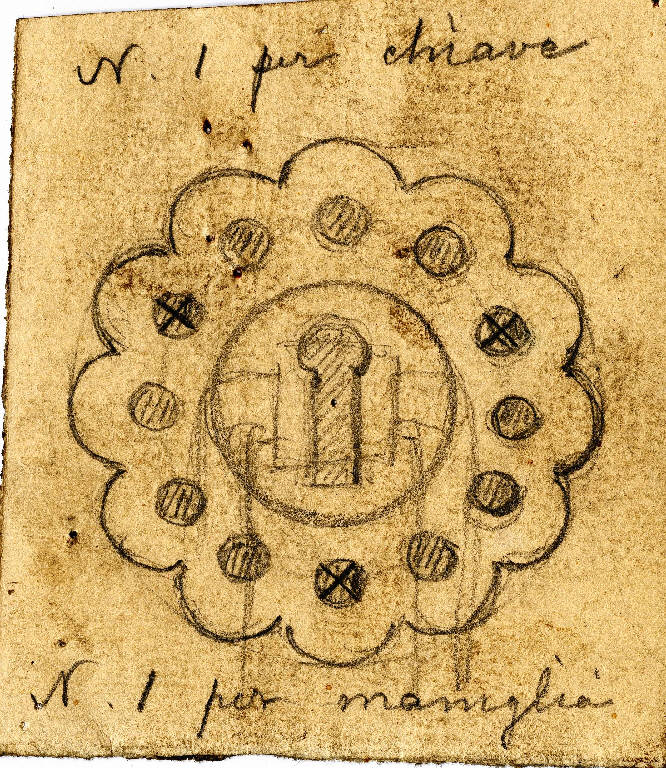 N. 1 per chiave
N. 1 per maniglia